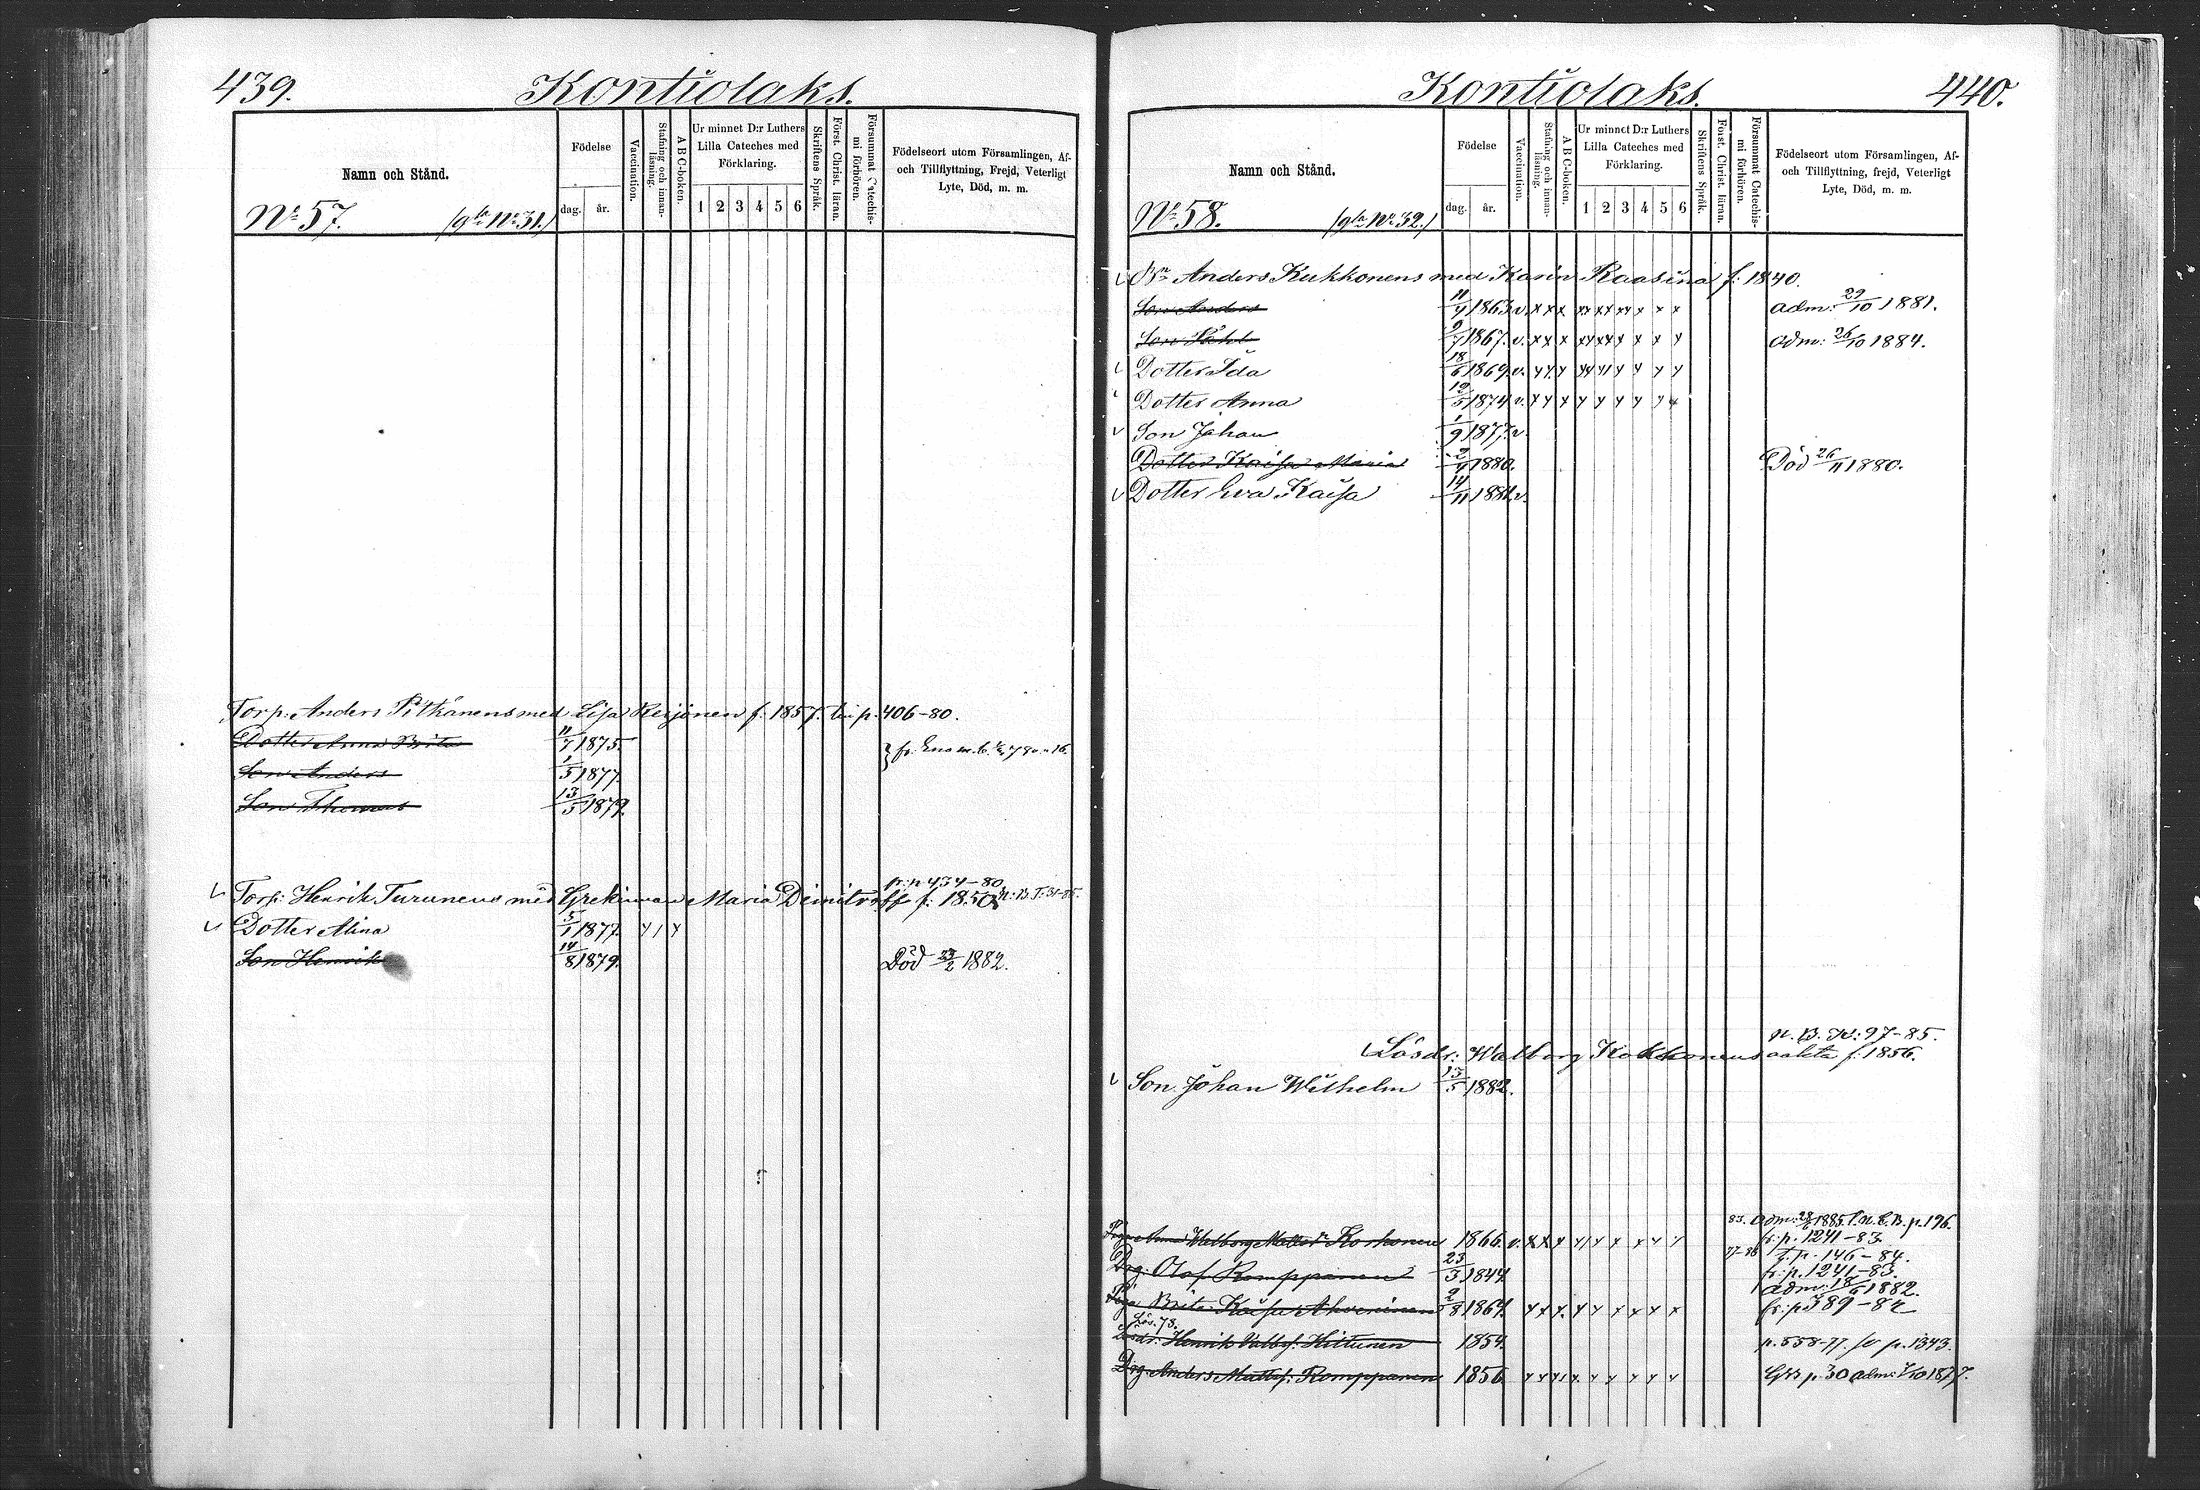 439.
Kontiolaks.
Namn och Stånd.
Födelse
dag. år.
Vaccination.
Stafning och innanläsning.
A B C-boken.
Ur minnet D:r Luthers
Lilla Cateches med
Förklaring.
1 2 3 4 5 6
Skriftens Språk.
Först. Christ. läran.
Försummat Catechismi förhören.
Födelseort utom Församlingen, Af-
och Tillflyttning, Frejd, Veterligt
Lyte, Död, m. m.
No 57. /gla No 31./
Torp: Anders Pitkänens med Lisa Reijonen f. 1857. p. 406-80.
Dotter Anna Brita 11/7 1875.
Son Anders 1/5 1877.
Son Thomas 13/5 1879.
p:p 434-80
Torp: Henrik Turunens med Grekinnan Maria Dimitroff f: 1850
Dotter Alina 5/1 1877.
Son Henrik 14/8 1879. Död 23/2 1882.
Kontiolaks.
440.
Namn och Stånd.
Födelse
dag. år.
Vaccination.
Stafning och innanläsning.
A B C-boken.
Ur minnet D:r Luthers
Lilla Cateches med
Förklaring.
1 2 3 4 5 6
Skriftens Språk.
Först. Christ. läran.
Försummat Catechismi förhören.
Födelseort utom Församlingen, Af-
och Tillflyttning, frejd, Veterligt
Lyte, Död, m. m.
No 58. /gla No 32./
Anders Kukkonens med Karin Raasina f: 1840.
Son Anders 11/4 1863. v. x x x adm: 29/10 1881.
Son Påhl 9/7 1867. v. x x x adm: 26/10 1884.
Dotter Ida 18/6 1869. v.
Dotter Anna 12/5 1874. v.
Son Johan 1/9 1877. v
Dotter Kaisa Maria 2/4 1880. Död 26/11 1880.
Dotter Eva Kaisa 14/11 1881. v.
n. B. K: 97-85.
Lösdr: Walborg Kokkonens oäkta f. 1856.
Son Johan Wilhelm 13/5 1882.
adm: 28/6 1885. n. C. B. p. 196.
Anna Walborg Korhonen 1866. v. fr: p. 1241-83.
t. p. 146-84.
Drg: Olof Romppanen 23/3 1844 fr: p. 1241-83.
adm: 18/6 1882.
Brita Kaisa Ahveninen 2/8 1864. fr: p 389-82
Lösdr: Henrik Hiltunen 1854. p. 558-77. p. 1343.
Drg: Anders Romppanen 1856 p. 30 adm: 1877.